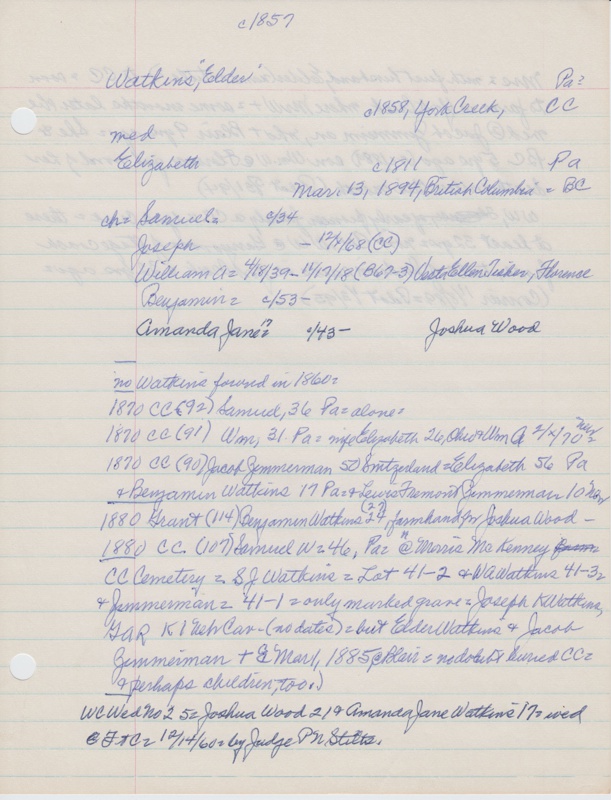 c1857
Watkins, "Elder" Pa=
c1858, York Creek, CC
= med
Elizabeth c1811 Pa
Mar. 13, 1894, British Columbia = BC
ch= Samuel= c/34
Joseph - 12/4/68 (CC)
William A= 4/18/39 - 11/17/18 (B67-3) Ellen Fisher, Florence
Benjamin= c/53-
Amanda Jane"= c/43- Joshua Wood
no Watkins found in 1860=
1870 CC (92) Samuel, 36 Pa= alone=
1870 CC (91) Wm, 31 Pa= wife Elizabeth 26, Ohio & Wm A 2/12/70 Neb=
1870 CC (90) Jacob Zimmerman 50 Switzerland = Elizabeth 56 Pa
& Benjamin Watkins 17 Pa & Lewis Fremont Zimmerman 10 Neb
1880 Grant (114) Benjamin Watkins (27) 24, farmhand for Joshua Wood -
1880 CC. (107) Samuel W= 46, Pa= @ Morris McKenney
CC Cemetery = S J Watkins = Lot 41-2 & WA Watkins 41-3=
& Zimmerman= 41-1 = only marked grave = Joseph K Watkins,
GAR K 1 Neb Cav - (no dates) = but Elder Watkins & Jacob
Zimmerman + Mar 1, 1885 @ Blair = no doubt buried CC=
& perhaps children, too.)
WC Wed No 25= Joshua Wood 21 & Amanda Jane Watkins 17= wed
@ Ft C= 12/14/60= by Judge P N Stilts.